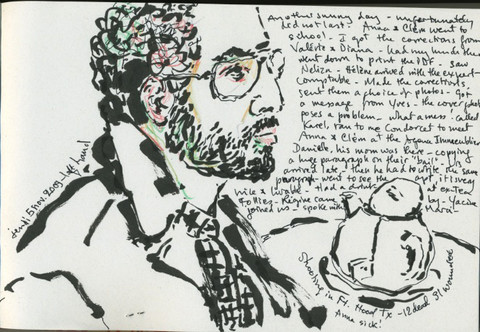 Another sunny day - unfortunately
did not last - Anna & Clém went to
school - I got the corrections from
Valérie & Diana - had my hands then
went down to print the PDF - saw
Neliza - Hélène arrived with the expert-
comptable - Made the corrections,
sent them a choice of photos - Got
a message from Yves - the cover photo
poses a problem - what a mess - called
Karel, ran to me Condorcet to meet
Anna & Clém at the
Danielle, his mom was there - copying
a huge paragraph on their
arrived late - they had to write the same
paragraph - went to see the
mile & livable - Had a drink at
Follies - Régine came by - Yacine
joined us - spoke with Mara -
jeudi 5 nov. 2009
Shooting in Ft. Hood Tx - 12 dead 31 wounded
Anna sick!